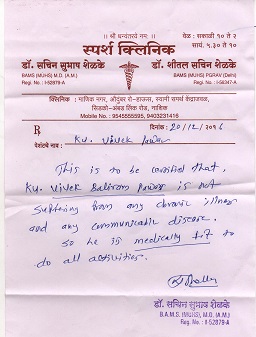 ॥ श्री धन्वंतरये नमः ॥
वेळ : सकाळी १० ते २
सायं. ५.३० ते १०
स्पर्श क्लिनिक
डॉ. सचिन सुभाष शेळके
BAMS (MUHS) M.D. (A.M.)
Reg. No. : I-52879-A
डॉ. शीतल सचिन शेळके
BAMS (MUHS) PGRAV (Delhi)
Reg. No. : I-56347-A
क्लिनिक : पाणिक नगर, औदुंबर रो-हाऊस, स्वामी समर्थ केंद्राजवळ,
सिडको-अंबड लिंक रोड, नाशिक
Mobile No. : 9545555595, 9403231416
R
दिनांक : 20/12/2016
पेशंटचे नाव :
Ku. Vivek Pawar
This is to be certified that,
Ku. Vivek Baliram Pawar is not
suffering from any chronic illness
and any communicable disease.
so he is medically fit to
do all activities.
डॉ. सचिन सुभाष शेळके
B.A.M.S. (M.U.H.S.), M.D. (A.M.)
Reg. No. : I-52879-A